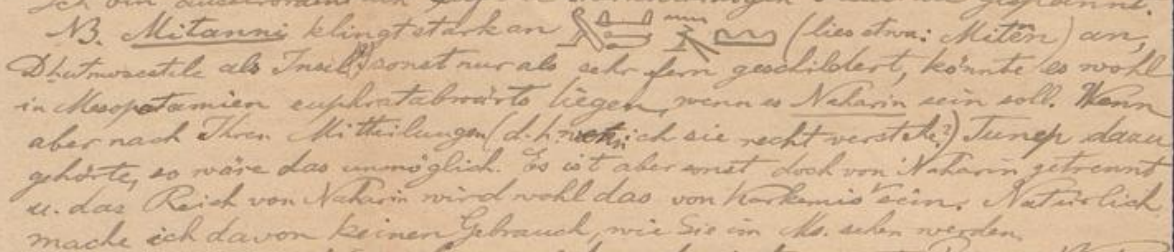 Ich bin ausserordentlich gespannt.
NB. Mitanni klingt stark an (lies etwa: Mitēn) an,
als Insel(?) sonst nur als sehr fern geschildert, könnte es wohl
in Mesopotamien euphratabwärts liegen, wenn es Naharin sein soll. Wenn
aber nach Ihren Mittheilungen (d. h. wenn ich sie recht verstehe?) Tunep dazu
gehörte, so wäre das unmöglich. Es ist aber sonst doch von Naharin getrennt
u. das Reich von Naharin wird wohl das von Karkemis sein. Natürlich
mache ich davon keinen Gebrauch, wie Sie im Ms. sehen werden.